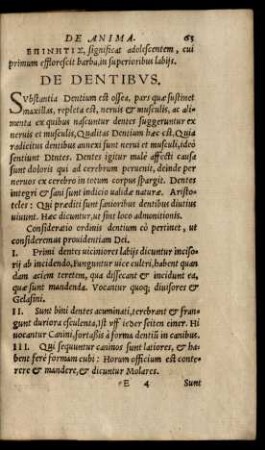 DE ANIMA. 63
ΕΠΙΝΕΤΙΣ, significat adolescentem, cui
primum efflorescit barba, in superioribus labijs.
DE DENTIBVS.
SVbstantia Dentium est ossea, pars quæ sustinet
maxillas, repleta est, neruis & musculis, ac ali-
menta ex quibus nascuntur dentes suggeruntur ex
neruis et musculis, Qualitas Dentium hæc est. Quia
radicitus dentibus annexi sunt nerui et musculi, ideò
sentiunt Dentes. Dentes igitur male affecti causa
sunt doloris qui ad cerebrum peruenit, deinde per
neruos ex cerebro in totum corpus spargit. Dentes
integri & sani sunt indicia validæ naturæ. Aristo-
teles: Qui præditi sunt sanioribus dentibus diutius
uiuunt. Hæc dicuntur, ut sint loco admonitionis.
Consideratio ordinis dentium eò pertinet, ut
consideremus prouidentiam Dei.
I. Primi dentes uiciniores labijs dicuntur inciso-
rij ab incidendo, funguntur uice cultri, habent quan
dam aciem teretem, qua dissecant & incidunt ea,
quæ sunt mandenda. Vocantur quoq; diuisores &
Gelasini.
II. Sunt bini dentes acuminati, terebrant & fran-
gunt duriora esculenta, Ist vff ieder seiten einer. Hi
uocantur Canini, fortassis à forma dentiũ in canibus.
III. Qui sequuntur caninos sunt latiores, & ha-
bent ferè formam cubi: Horum officium est conte-
rere & mandere, & dicuntur Molares.
E 4 Sunt